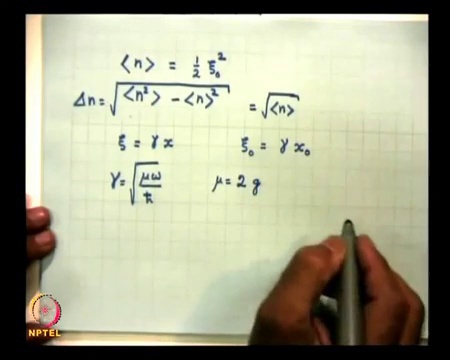 ⟨n⟩ = 1/2 ξ₀²
Δn = √(⟨n²⟩ − ⟨n⟩²) = √⟨n⟩
ξ = γ x ξ₀ = γ x₀
γ = √(μω/ħ) μ = 2 g
NPTEL